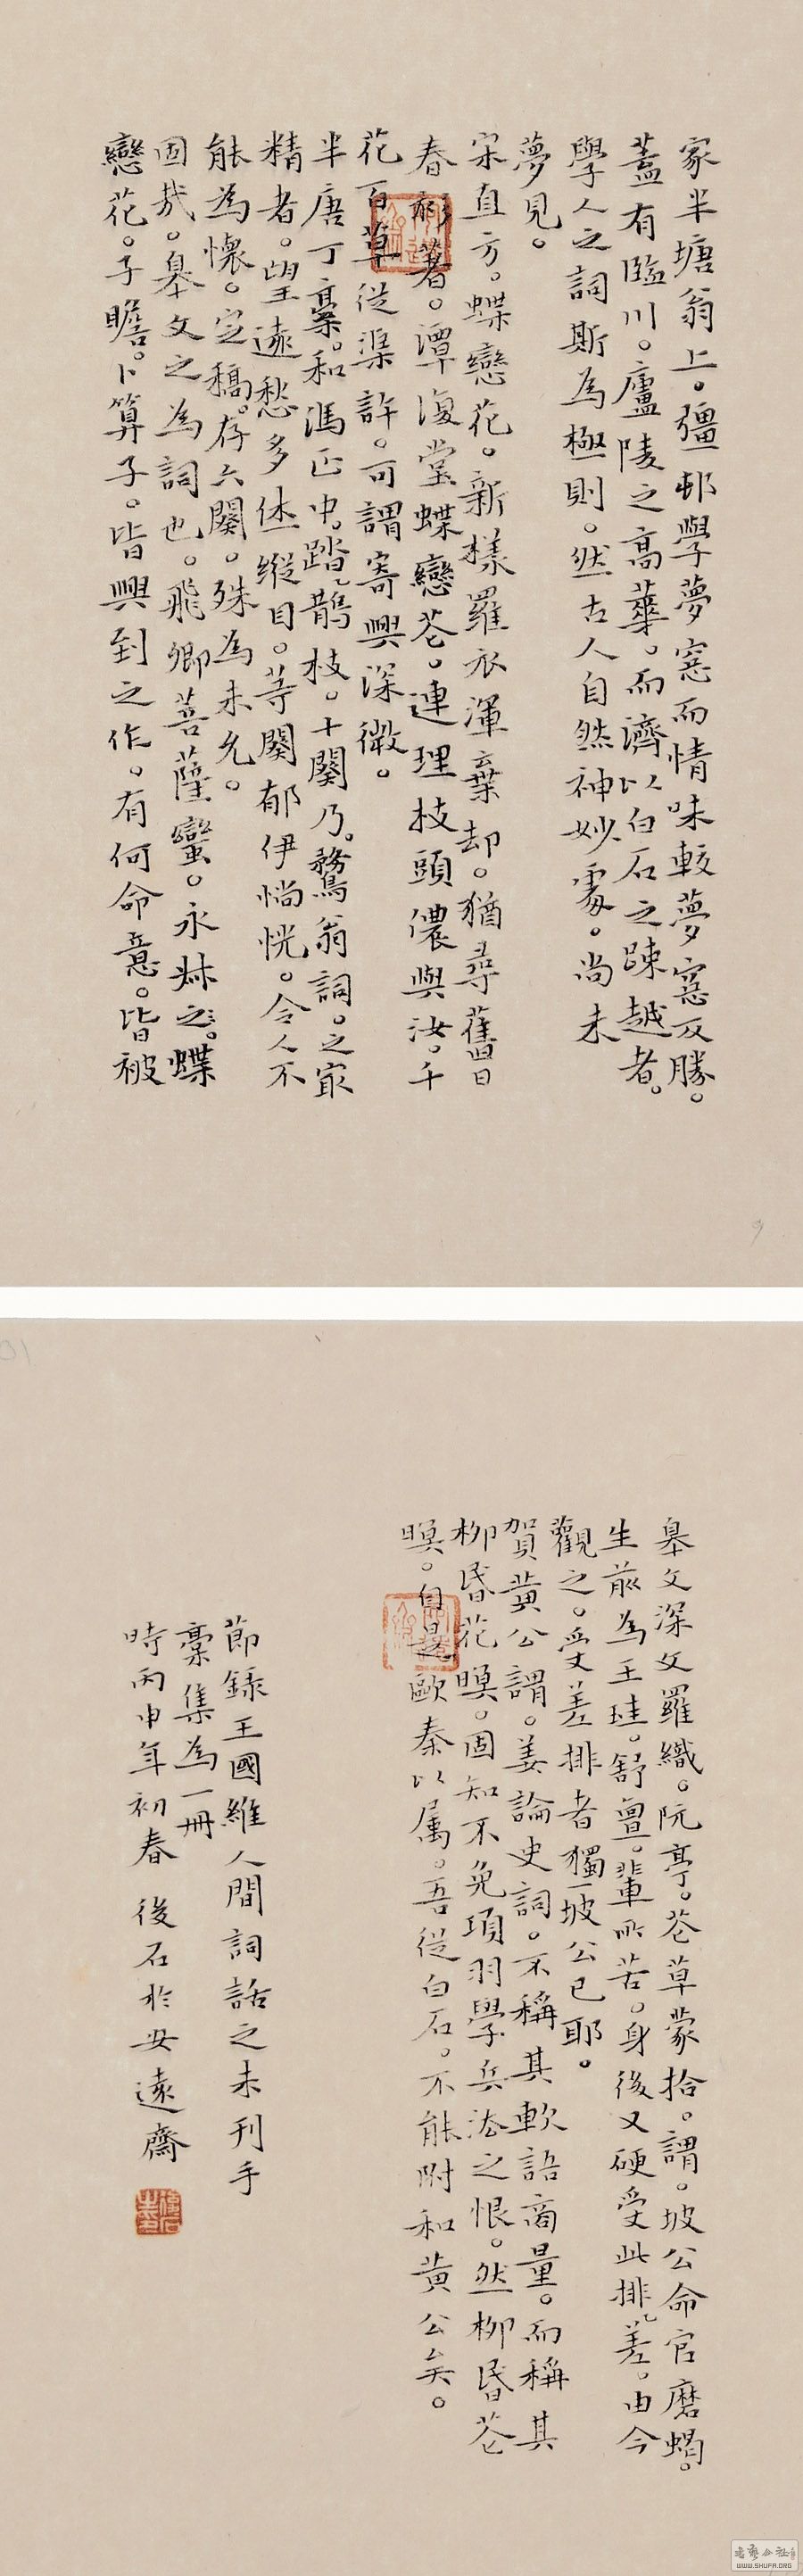 家半塘翁上。彊邨學夢窗而情味較夢窗反勝。
蓋有臨川。廬陵之高華。而濟以白石之疎越者。
學人之詞斯為極則。然古人自然神妙處。尚未
夢見。
宋直方。蝶戀花。新樣羅衣渾棄却。猶尋舊日
春衫著。譚復堂蝶戀花。連理枝頭儂與汝。千
花百草從渠許。可謂寄興深微。
半唐丁稾。和馮正中。踏鵲枝。十闋乃。鶩翁詞。之冣
精者。望遠愁多休縱目。等闋郁伊惝怳。令人不
能為懷。定稿。存六闋。殊為未允。
固哉。皋文之為詞也。飛卿菩薩蠻。永叔之。蝶
戀花。子瞻。卜算子。皆興到之作。有何命意。皆被
皋文深文羅織。阮亭。花草蒙拾。謂。坡公命宮磨蝎。
生前為王珪。舒亶。輩所苦。身後又硬受此排差。由今
觀之。受差排者獨一坡公已耶。
賀黄公謂。姜論史詞。不稱其軟語商量。而稱其
柳昏花暝。固知不免項羽學兵法之恨。然柳昏花
暝。自是歐秦以属。吾從白石。不能附和黄公矣。
節錄王國維人間詞話之未刊手
稾集為一冊
時丙申年初春 後石於安遠齋
WWW.SHUFA.ORG